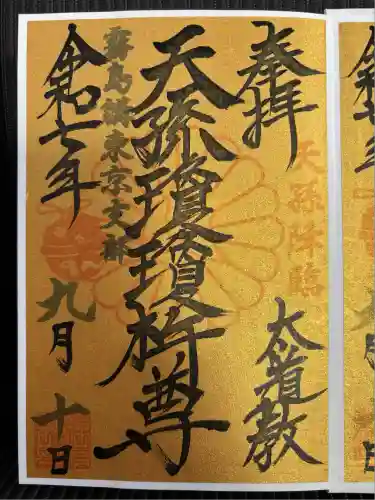 奉拝
天孫降臨
大道教
天孫瓊瓊杵尊
霧島講東京支部
令和七年
九月十日